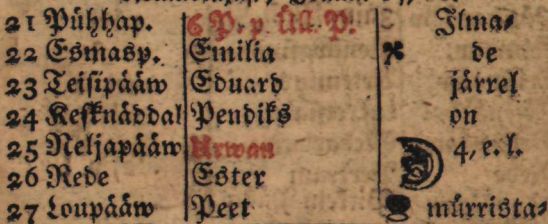 21 Pühhap. 6 P. p Üll. P. Ilma-
22 Esmasp. Emilia de
23 Teisipääw Eduard järrel
24 Kesknäddal Pendiks on
25 Neljapääw Urwan 4, e. l.
26 Rede Ester
27 Loupääw Peet mürrista-